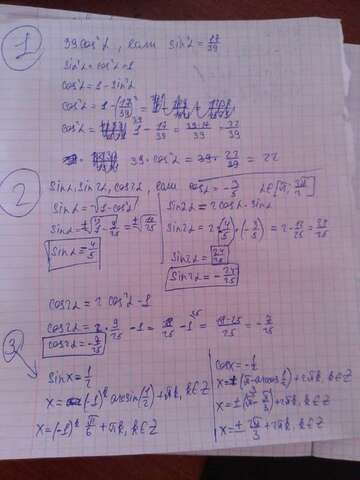 1
39cos²α, если sin²α = 17/39
sin²α + cos²α = 1
cos²α = 1 - sin²α
cos²α = 1 - (17/39) =
cos²α = 1 - 17/39 = 39-17/39 = 22/39
39·cos²α = 39· 22/39 = 22
2
sinα, sin2α, cos2α, если cosα = -3/5 α∈[π; 3π/2]
sinα = √1-cos²α
sinα = ±√1 - 9/25 = ±√16/25
sinα = 4/5
sin2α = 2cosα·sinα
sin2α = 2·(4/5)·(-3/5) = 2·12/25 = 24/25
sin2α = 24/25
sin2α = -24/25
cos2α = 2cos²α - 1
cos2α = 2·9/25 - 1 = 18/25 - 1 = 18-25/25 = -7/25
cos2α = -7/25
3
sinx = 1/2
x = (-1)ᵏ arcsin(1/2) + πk, k∈Z
x = (-1)ᵏ π/6 + πk, k∈Z
cosx = -1/2
x = ±(π - arccos 1/2) + 2πk, k∈Z
x = ±(π - π/3) + 2πk, k∈Z
x = ± 2π/3 + 2πk, k∈Z